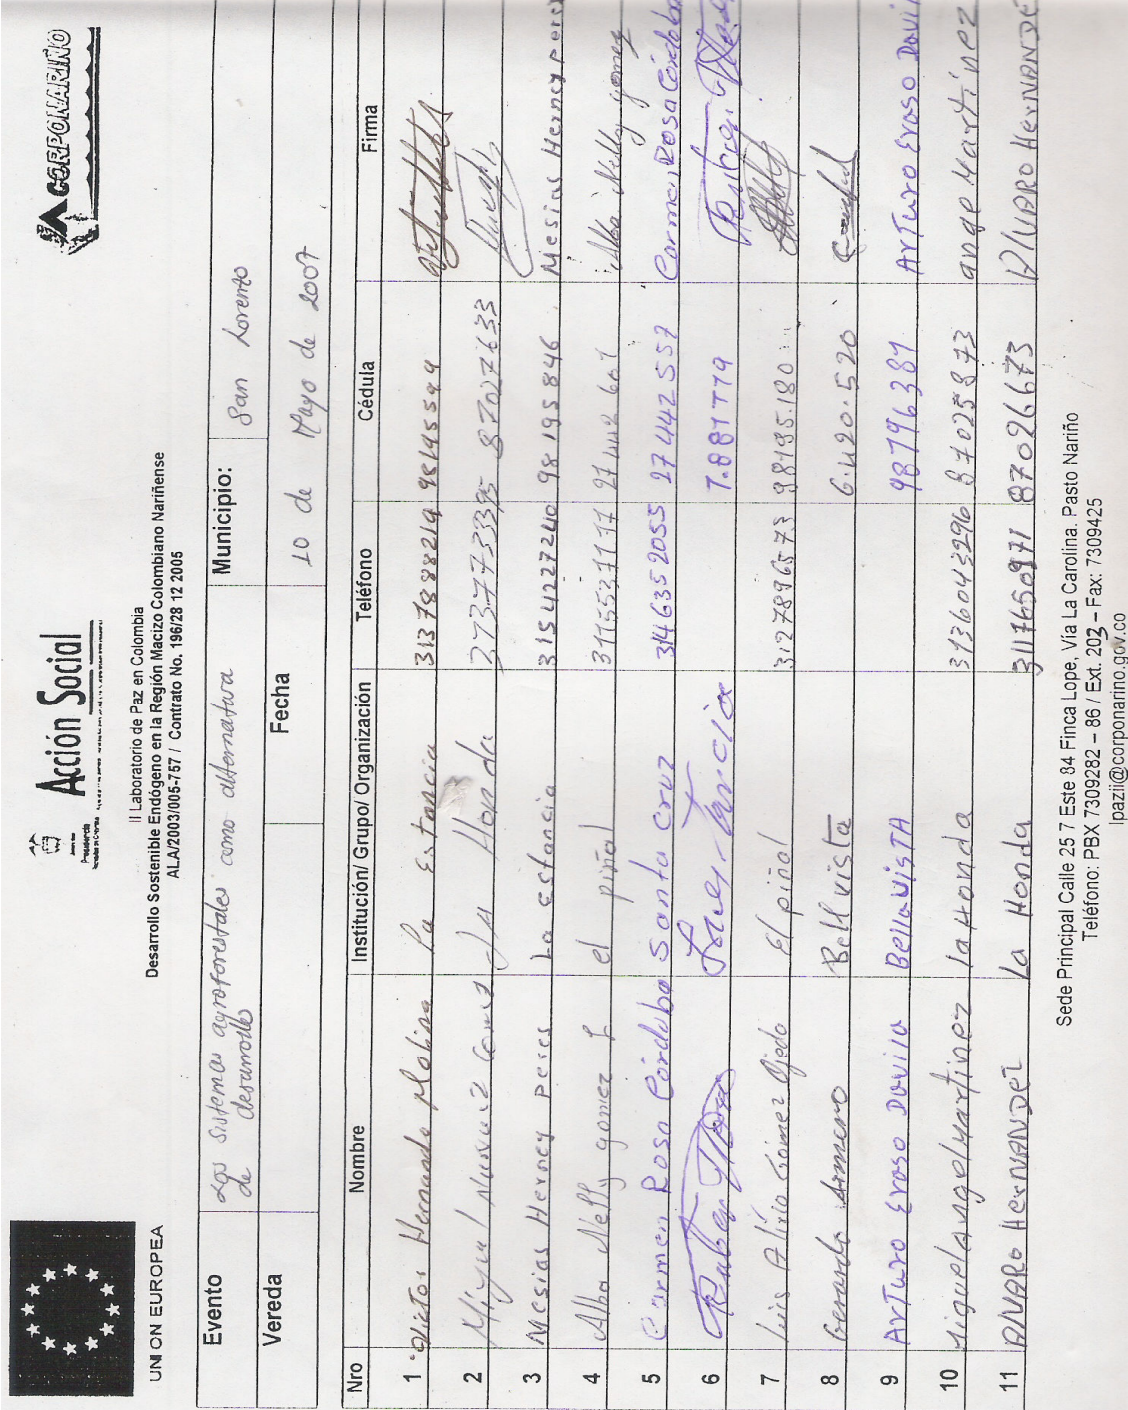 UNION EUROPEA
Acción Social
CORPONARIÑO
II Laboratorio de Paz en Colombia
Desarrollo Sostenible Endógeno en la Región Macizo Colombiano Nariñense
ALA/2003/005-757 / Contrato No. 196/28 12 2005
Evento Los Sistemas agroforestales como alternativa de desarrollo Municipio: San Lorenzo
Vereda Fecha 10 de Mayo de 2007
Nro Nombre Institución/ Grupo/ Organización Teléfono Cédula Firma
1 Victor Hernando Molina la Estancia 3137888219 98195599
2 Miguel Gomez La Honda 87027633
3 Mesias Herney peres La Estancia 3154227240 98195846 Mesias Herney peres
4 Alba Nelly gomez L el piñal 3115537177 27442601 Alba Nelly gomez
5 Carmen Rosa Córdoba Santa Cruz 3146352055 27442557 Carmen Rosa Córdoba
6 Ruben
7 Luis Alirio Gómez Ojedo El piñal 3127896573 98195.180
8 Gerardo Armero Bellvista 6420.520
9 ArTuro Eraso Davila BellaVISTA 98796381 ArTuro Eraso Davil
10 Miguel angel Martinez la Honda 3136043296 87025873 ange Martinez
11 AlVARO HerNANDEZ La Honda 3117650971 87026673 AlVARO HerNANDE
Sede Principal Calle 25 7 Este 84 Finca Lope, Vía La Carolina. Pasto Nariño
Teléfono: PBX 7309282 – 86 / Ext. 202 – Fax: 7309425
lpazii@corponarino.gov.co